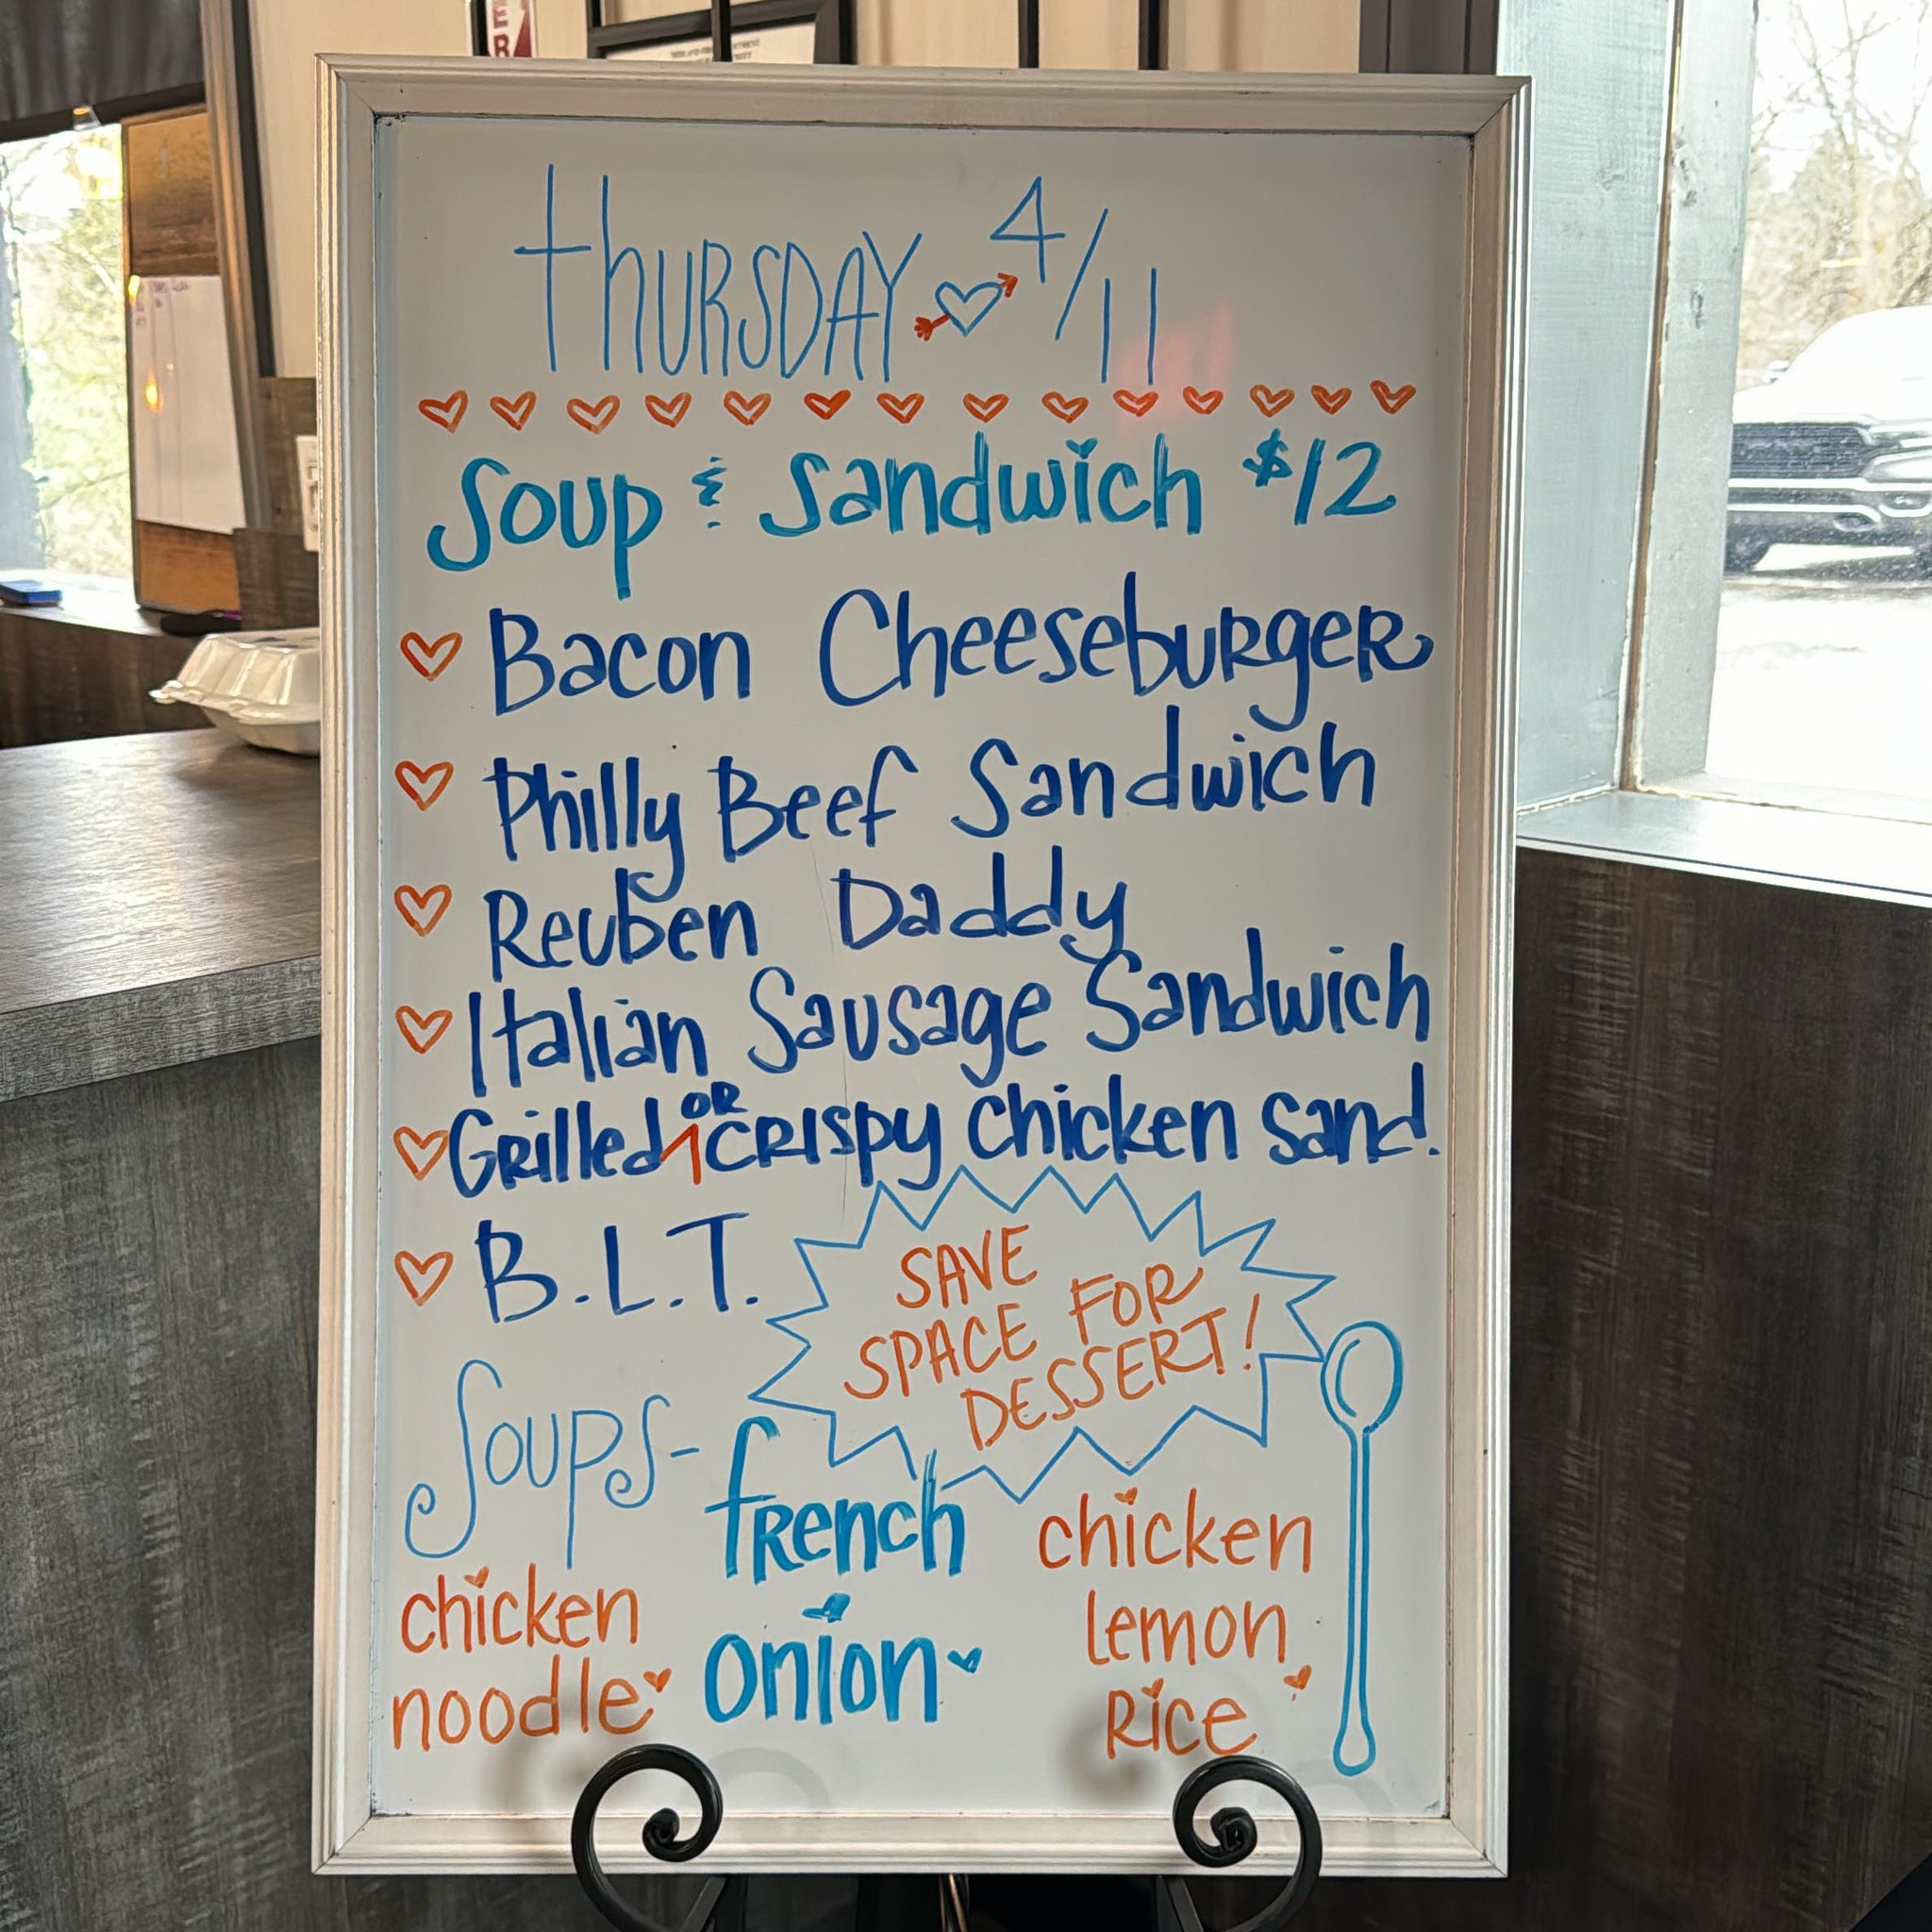 thURSDAY 4/11
Soup & Sandwich $12
Bacon CheesebuRgeR
Philly Beef Sandwich
Reuben Daddy
Italian Sausage Sandwich
GRilled OR CRIspy Chicken Sand.
B.L.T.
SAVE
SPACE FOR
DESSERT!
SOUPS-
chicken
noodle
fRench
onion
chicken
lemon
Rice